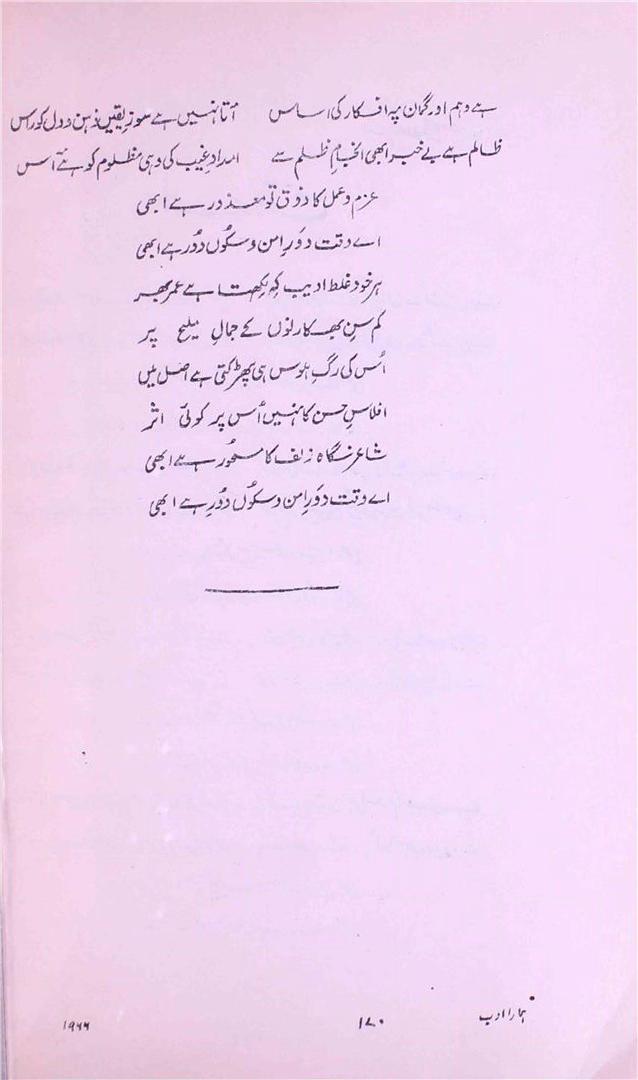 ہے وہم اور گمان پہ افکار کی اساس آتا نہیں ہے سوزِ یقیں ذہن و دل کو راس
ظالم ہے بے خبر ابھی انجامِ ظلم سے امدادِ غیب کی وہی مظلوم کو ہے آس
عزم و عمل کا ذوق تو معذور ہے ابھی
اے وقت دَورِ امن و سکوں دُور ہے ابھی
ہر خود غلط ادیب کہ لکھتا ہے عمر بھر
کم سِن بھکارنوں کے جمالِ ملیح پر
اُس کی رگِ ہوس ہی پھڑکتی ہے اصل میں
افلاسِ حسن کا نہیں اُس پر کوئی اثر
شاعر نگاہ زلف کا مسحُور ہے ابھی
اے وقت دَورِ امن و سکوُں دُور ہے ابھی
ہمارا ادب
۱۷۰
۱۹۶۶